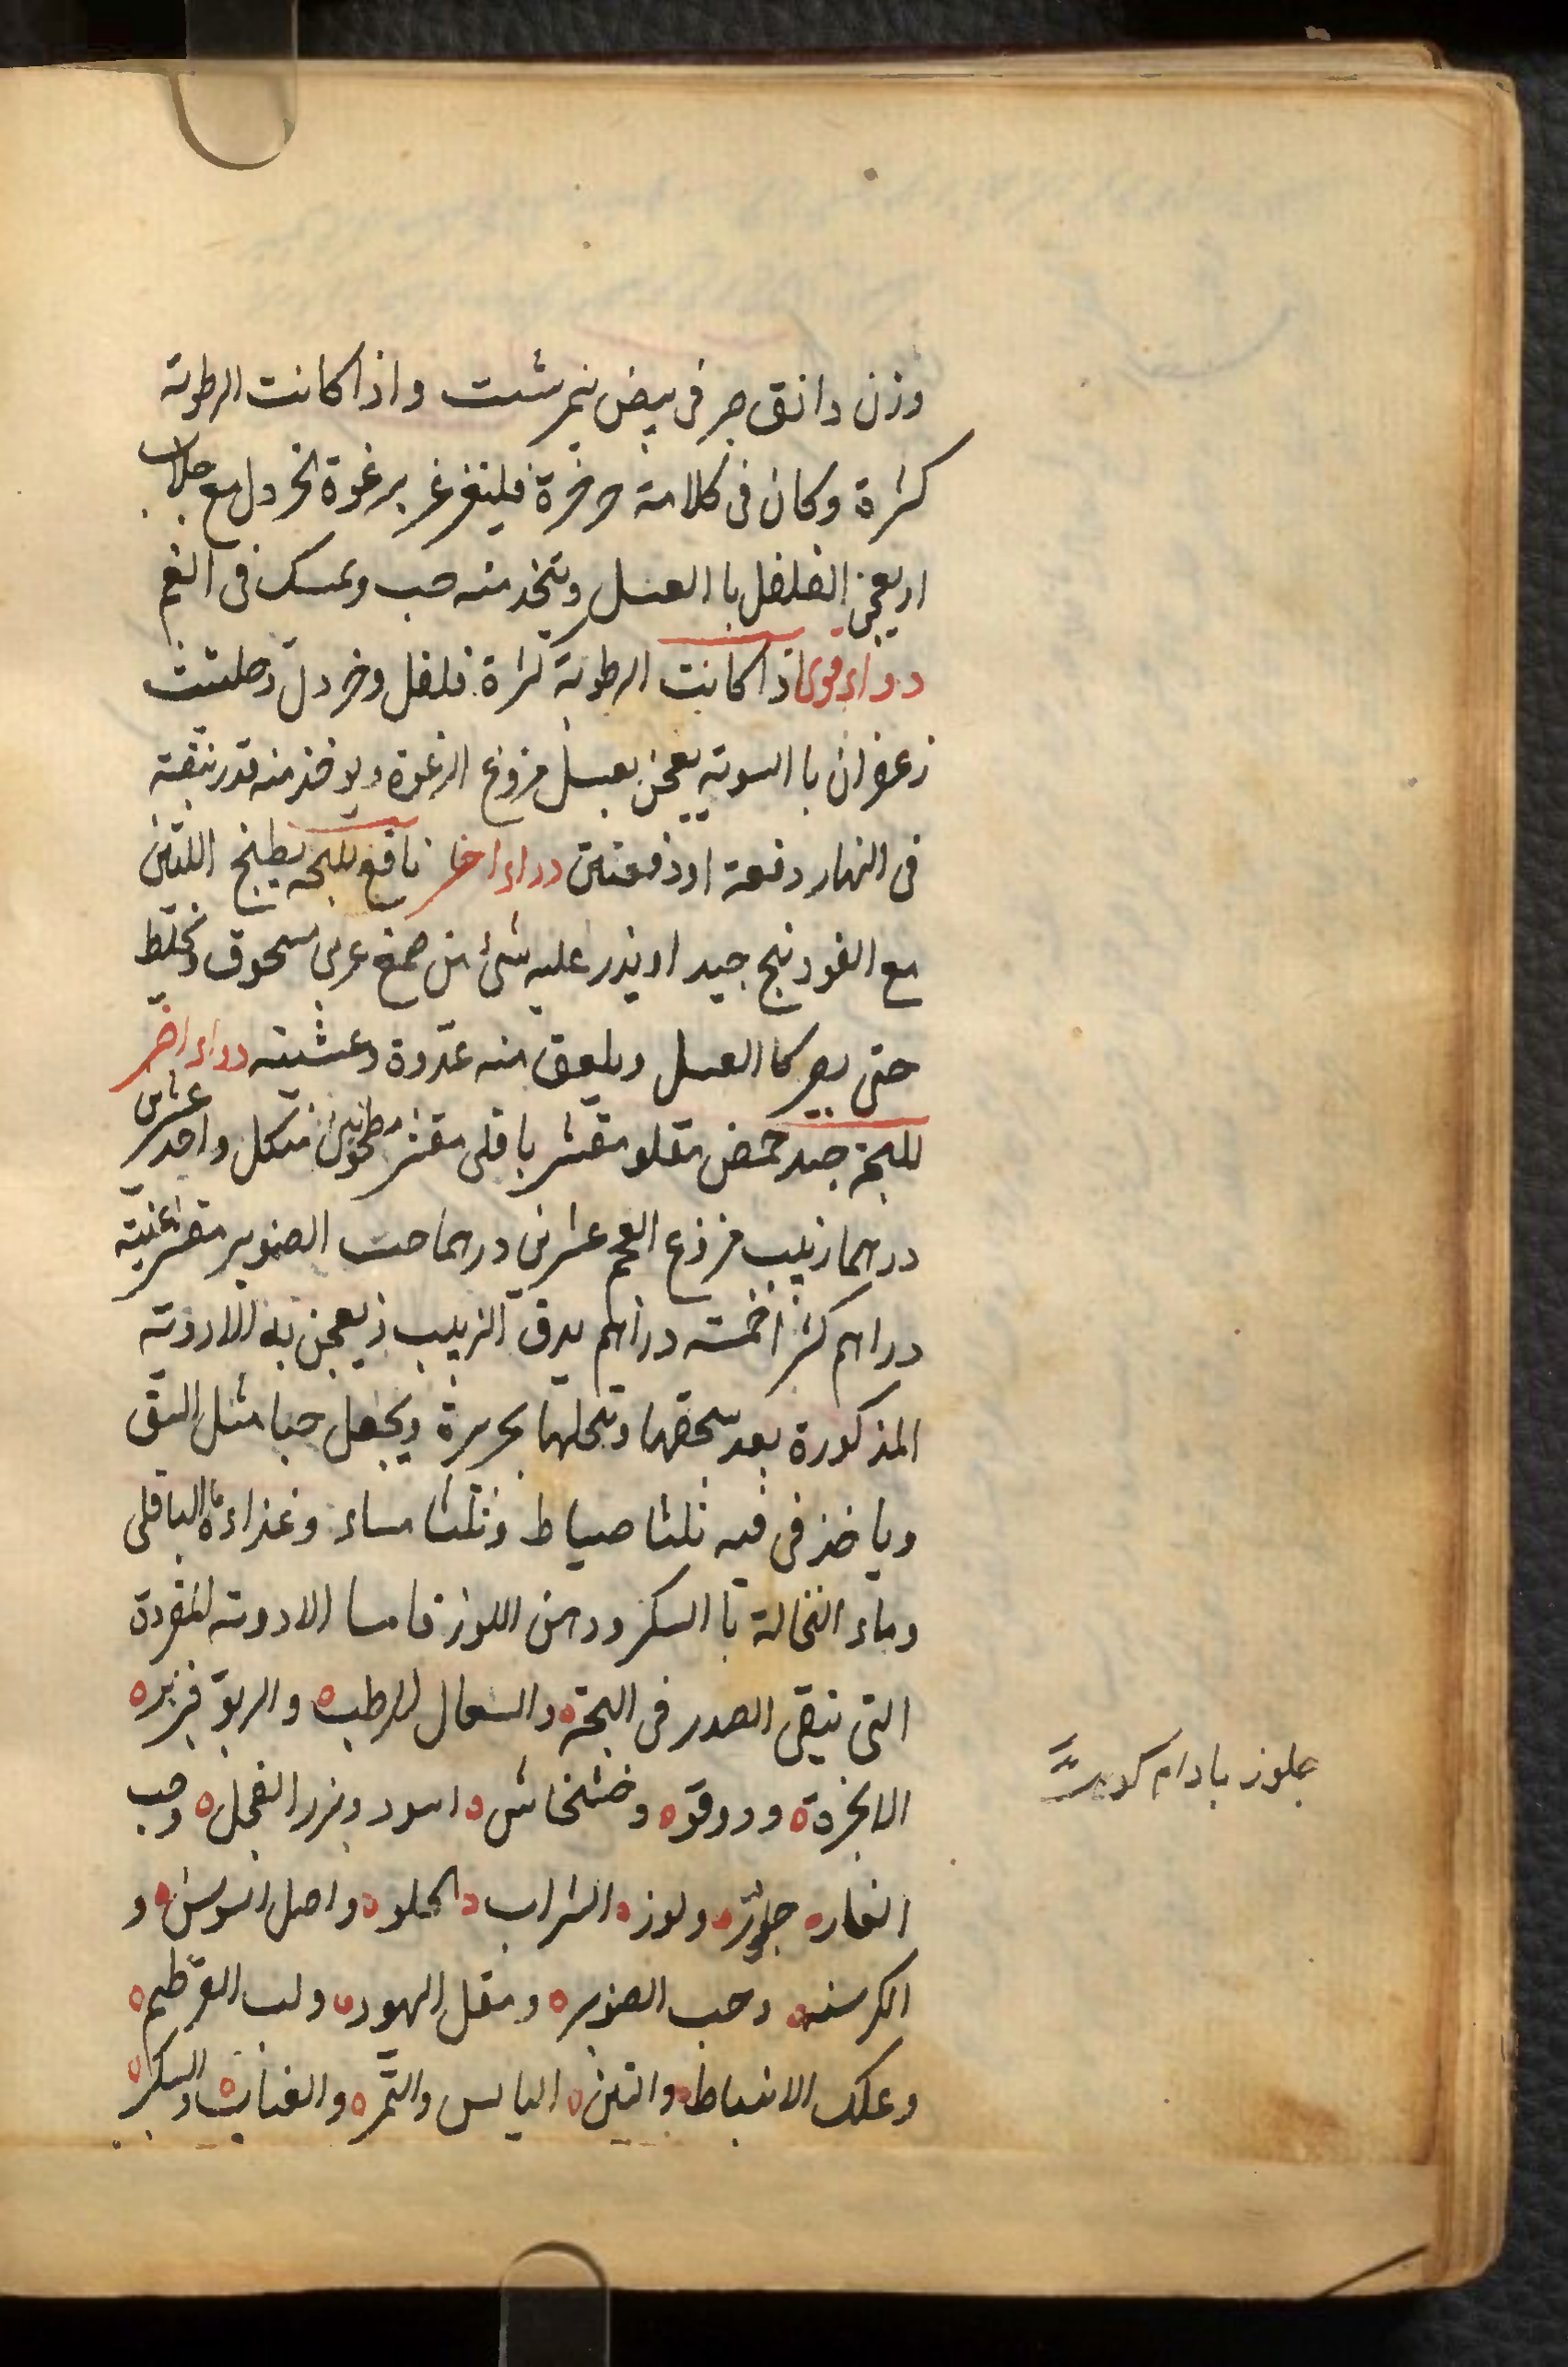 وزن دانق جر فى بيض نيمرشت واذا كانت الرطوبة
كثيرة وكان فى كلامه خرخرة فليتغرغر برغوة الخردل مع جلاب
او يعجن الفلفل با العسل ويتخذ منه حب ويمسك فى الفم
دواء قوى اذا كانت الرطوبة كثرة فلفل وخردل وحلتيت
زعفران با السويه يعجن بعسل منزوع الرغوة ويوخذ منه قدر نبقة
فى النهار دفعة او دفعتين دواء اخر نافع للبحه يطبخ التين
مع الفودنج جيد او يذر عليه شئ من صمغ عربى مسحوق ويخلط
حتى يصير كا العسل ويلعق منه غدوة وعشيته دواء اخر
للبحة جيد حمص مقلو مقشر باقلى مقشر مطحونين من كل واحد عشرين
درهما زبيب منزوع العجم عشرين درهما حب الصنوبر مقشر ثمنية
دراهم كثيرا خمسة دراهم يدق الزبيب ويعجن به الادوية
المذكورة بعد سحقها ونخلها بحريرة ويجعل حبا مثل النبق
وياخذ فى فيه ثلثا صباحا وثلثا مساء وغذاءه ماء الباقلى
وماء النخالة با السكر ودهن اللوز فاما الادوية المفردة
التى تنقى الصدر فى البحة والسعال الرطب والربو فبزر
الانجرة ودوقو وخشخاش اسود وبزر الفجل وحب
الغار جلوز ولوز الشراب الحلو واصل السوس و
الكرسنه وحب الصنوبر ومقل اليهود ولب القرطم
وعلك الانباط والتين اليابس والتمر والعناب والسكر
جلوز بادام